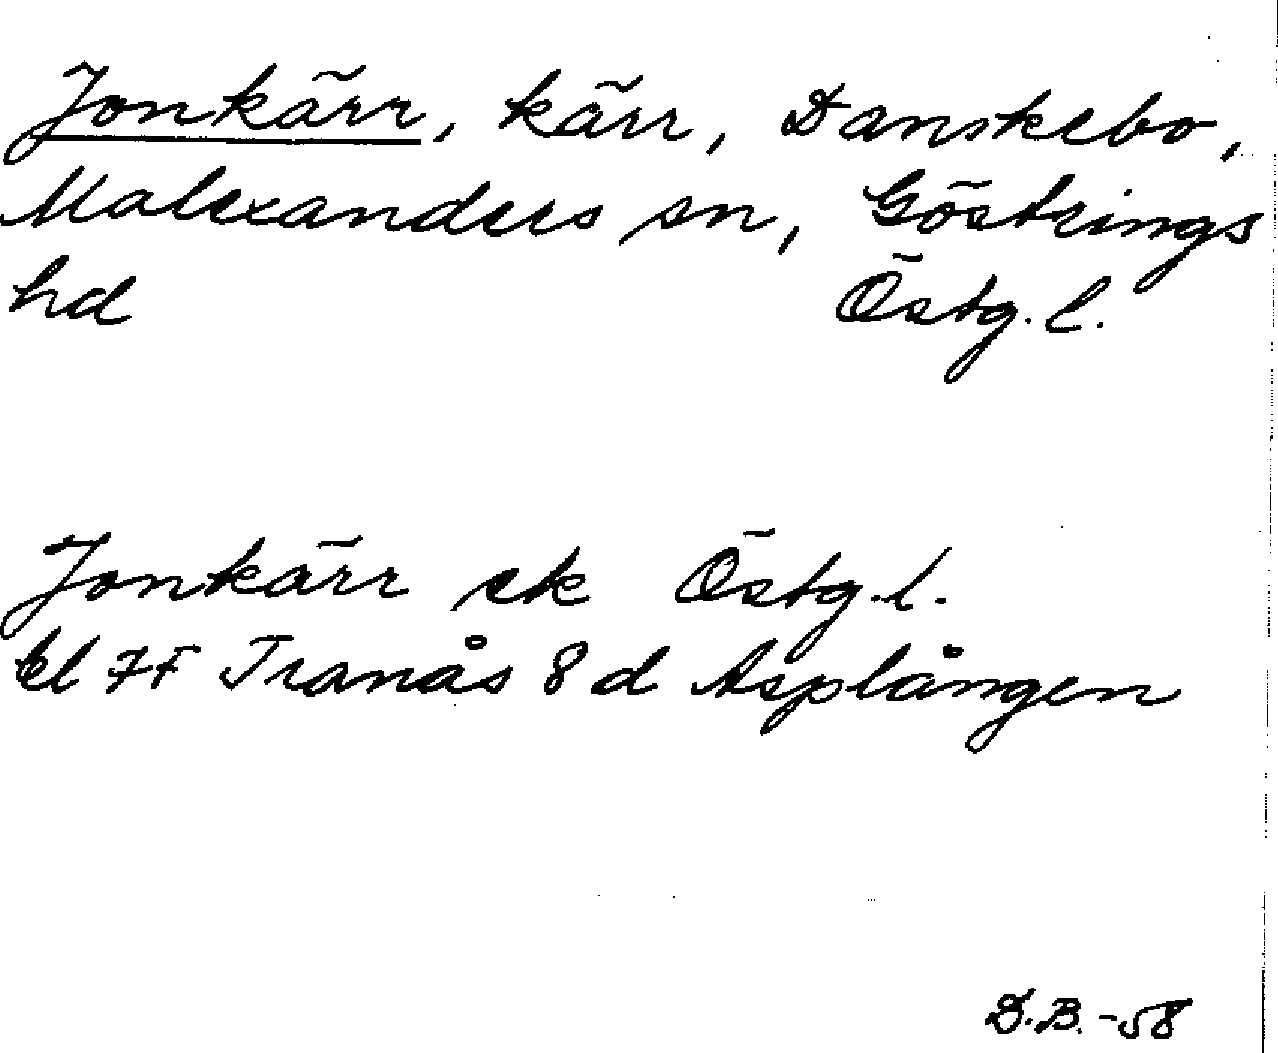 Jonkärr, kärr, Danskebo,
Malexanders sn, Göstrings
hd Östg. l.
Jonkärr ek Östg. l.
bl 7F Tranås 8 d Asplången
D.B. -58